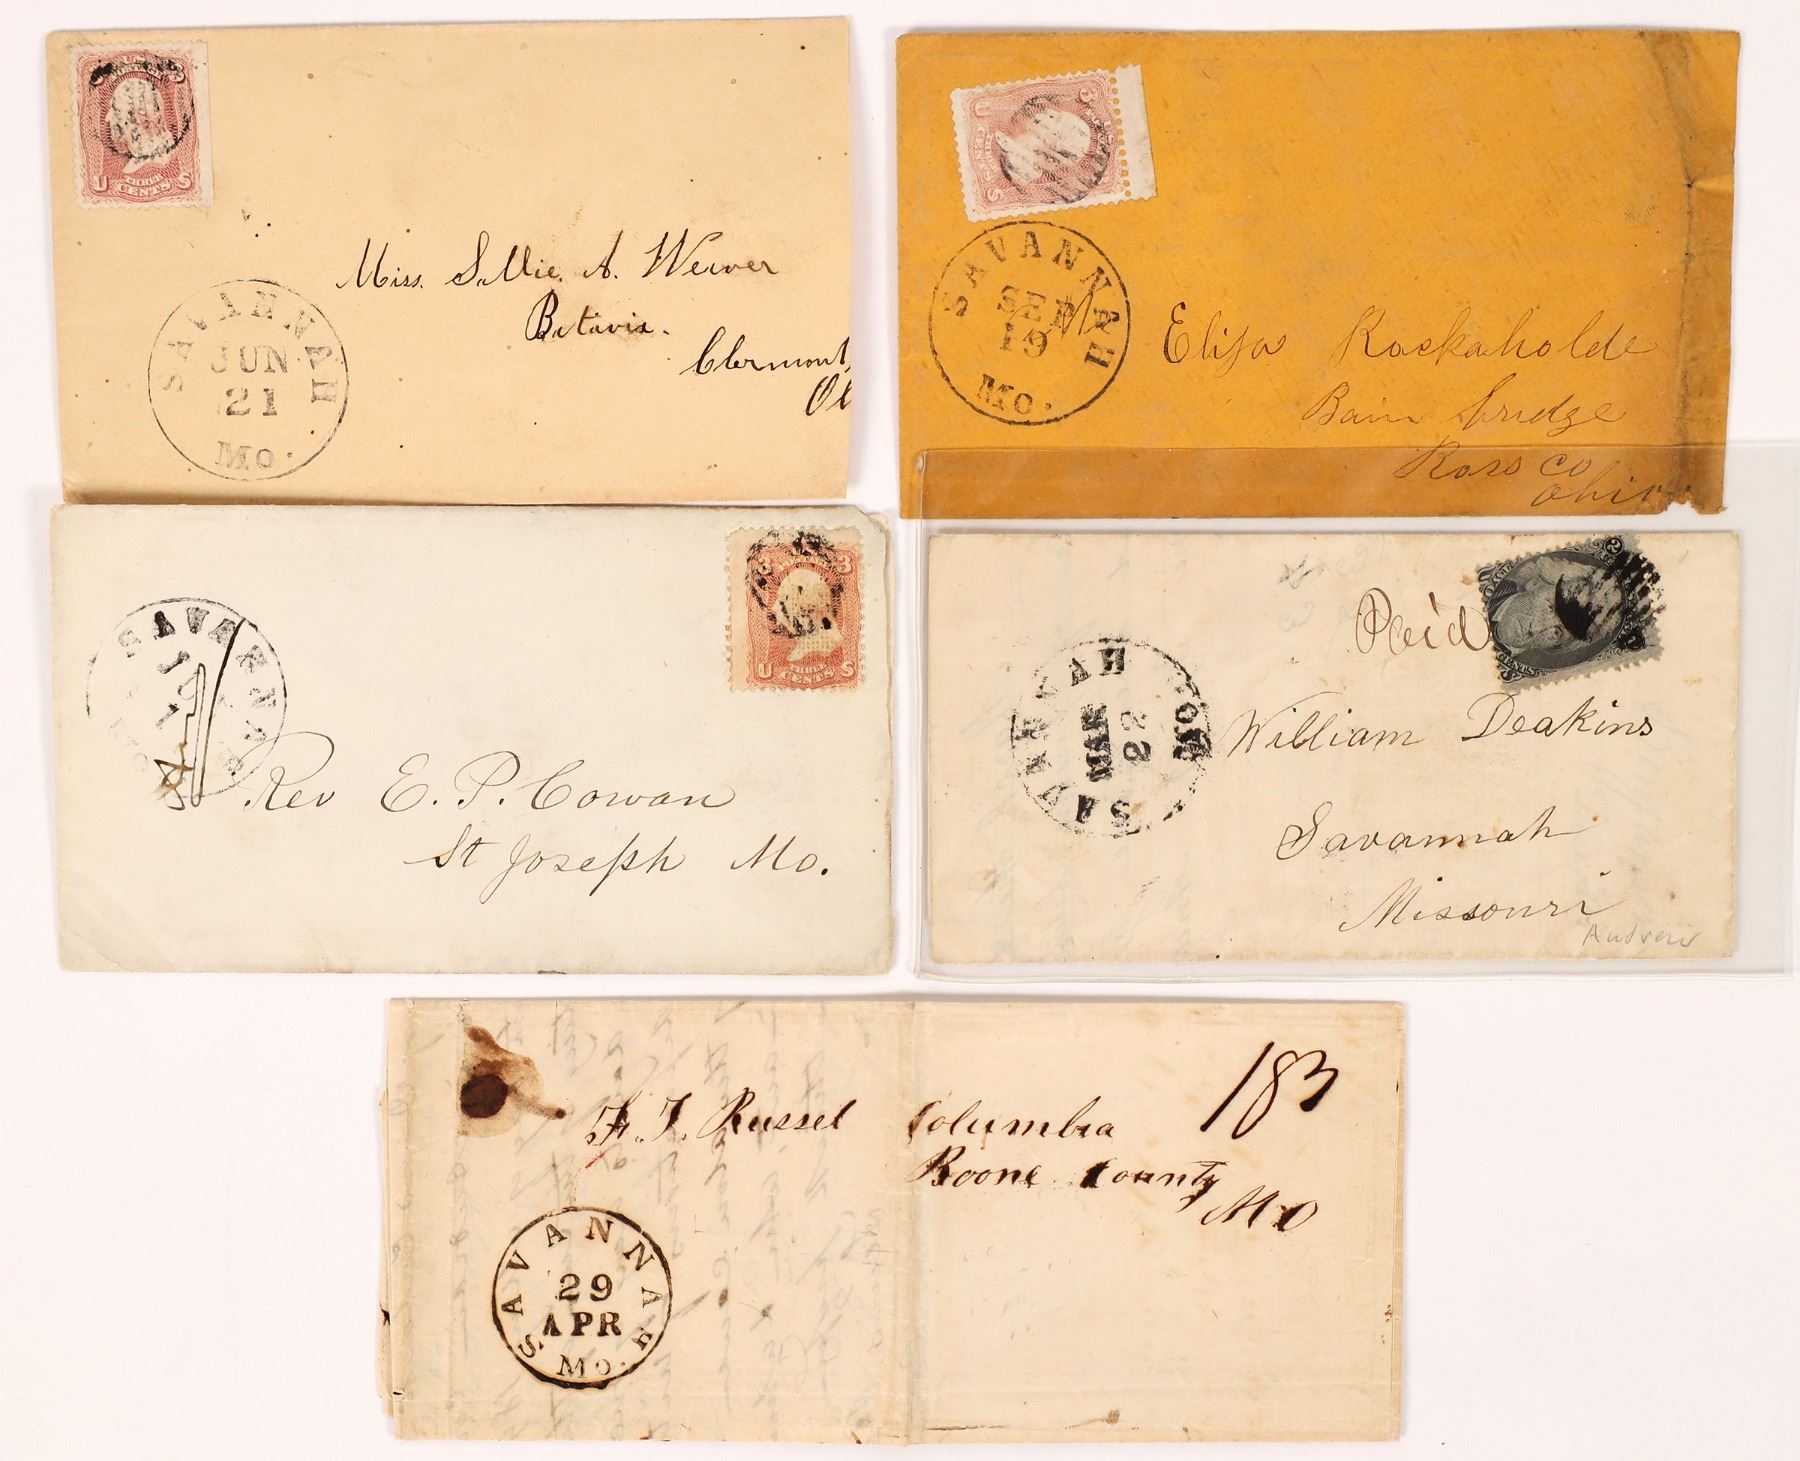 U THREE CENTS S
Miss. Sallie. A. Weaver
Batavia.
Clermont,
SAVANNAH
JUN
21
Mo.
U 3 S
SAVANNAH
SEP
19
Mo.
Eliza Rockaholde
Bain bridge
Ross Co
Ohio
3 3
U THREE CENTS S
SAVANNAH
Rev E. P. Cowan
St Joseph Mo.
Paid
2
CENTS
SAVANNAH
MAR
22
MO.
William Deakins
Savannah
Missouri
Andrew
183
F. T. Russel Columbia
Boone County
Mo
SAVANNAH
29
APR
Mo.